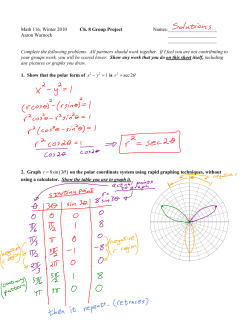 Math 116, Winter 2010 Ch. 8 Group Project Names: Solutions
Aaron Warnock
Complete the following problems. All partners should work together. If I feel you are not contributing to
your groups work, you will be scored lower. Show any work that you do on this sheet itself, including
any pictures or graphs you draw.
1. Show that the polar form of x² − y² = 1 is r² = sec 2θ
x² − y² = 1
(r cosθ)² − (r sinθ)² = 1
r² cos²θ − r² sin²θ = 1
r² (cos²θ − sin²θ) = 1
r² cos2θ = 1 → r² = sec2θ
cos2θ cos2θ
2. Graph r = 8 sin(3θ) on the polar coordinate system using rapid graphing techniques, without
using a calculator. Show the table you use to graph it.
starting point
θ 3θ sin 3θ r = 8 sin 3θ
0 0 0 0
π/6 π/2 1 8
π/3 π 0 0
then it repeats (retraces)